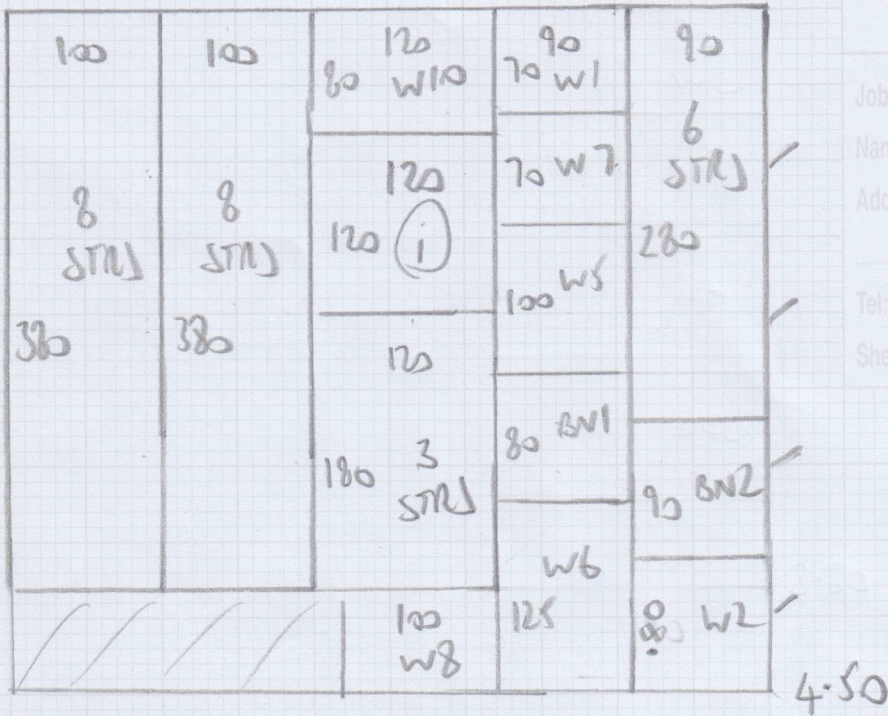 100
8
STRS
380
100
8
STRS
380
120
80 W10
120
120 i
120
180 3
STRS
100
W8
90
70 W1
70 W7
100 W5
80 BN1
W6
125
90
6
STRS
280
90 BN2
W2
4.50
Job
Nam
Add
Tel:
She